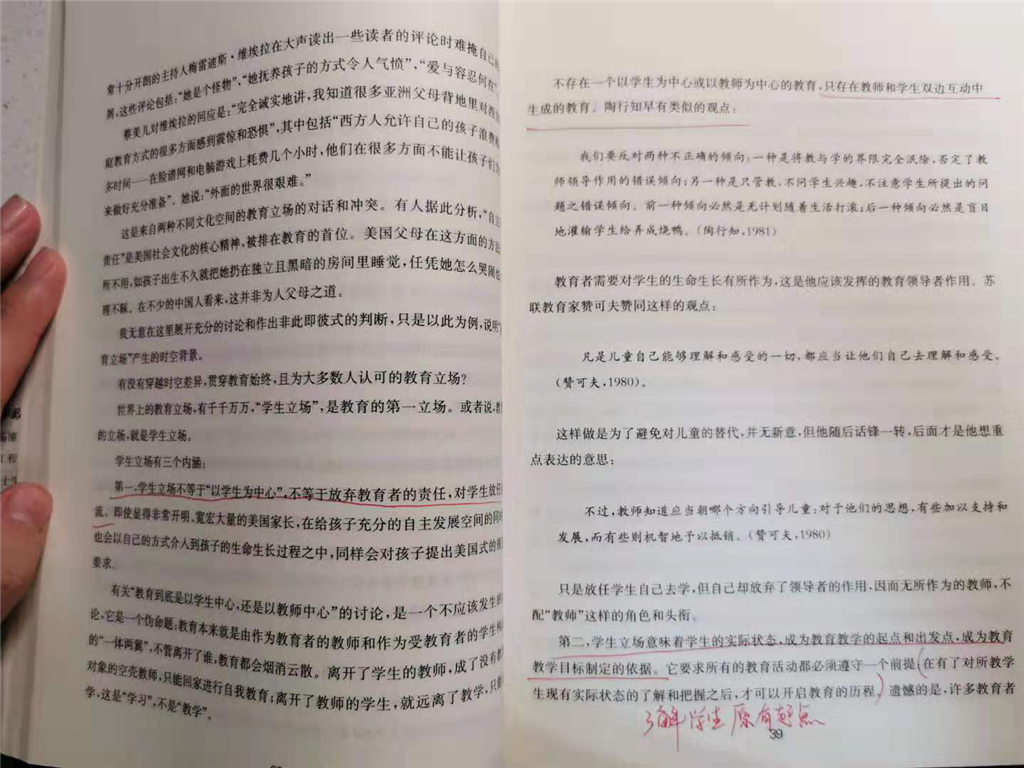 常十分开朗的主持人梅雷迪斯·维埃拉在大声读出一些读者的评论时难掩自己的
测,这些评论包括:“她是个怪物”,“她抚养孩子的方式令人气愤”,“爱与容忍何在”
蔡美儿对维埃拉的回应是:“完全诚实地讲,我知道很多亚洲父母背地里对西方
庭教育方式的很多方面感到震惊和恐惧”,其中包括“西方人允许自己的孩子浪费
多时间——在脸谱网和电脑游戏上耗费几个小时,他们在很多方面不能让孩子们为
来做好充分准备”。她说:“外面的世界很艰难。”
这是来自两种不同文化空间的教育立场的对话和冲突。有人据此分析,“自立
责任”是美国社会文化的核心精神,被排在教育的首位。美国父母在这方面的方法
所不用,如孩子出生不久就把她扔在独立且黑暗的房间里睡觉,任凭她怎么哭闹也
理不睬。在不少的中国人看来,这并非为人父母之道。
我无意在这里展开充分的讨论和作出非此即彼式的判断,只是以此为例,说明“
育立场”产生的时空背景。
有没有穿越时空差异,贯穿教育始终,且为大多数人认可的教育立场?
世界上的教育立场,有千千万万,“学生立场”,是教育的第一立场。或者说,教
的立场,就是学生立场。
学生立场有三个内涵:
第一,学生立场不等于“以学生为中心”,不等于放弃教育者的责任,对学生放任
流。即使显得非常开明、宽宏大量的美国家长,在给孩子充分的自主发展空间的同时
也会以自己的方式介入到孩子的生命生长过程之中,同样会对孩子提出美国式的
要求。
有关“教育到底是以学生中心,还是以教师中心”的讨论,是一个不应该发生的
论,它是一个伪命题;教育本来就是由作为教育者的教师和作为受教育者的学生构
的“一体两翼”,不管离开了谁,教育都会烟消云散。离开了学生的教师,成了没有教
对象的空壳教师,只能回家进行自我教育;离开了教师的学生,就远离了教学,只能
学,这是“学习”,不是“教学”。
不存在一个以学生为中心或以教师为中心的教育,只存在教师和学生双边互动中
生成的教育。陶行知早有类似的观点:
我们要反对两种不正确的倾向:一种是将教与学的界限完全泯除,否定了教
师领导作用的错误倾向;另一种是只管教,不问学生兴趣,不注意学生所提出的问
题之错误倾向。前一种倾向必然是无计划随着生活打滚;后一种倾向必然是盲目
地灌输学生给弄成烧鸭。(陶行知,1981)
教育者需要对学生的生命生长有所作为,这是他应该发挥的教育领导者作用。苏
联教育家赞可夫赞同这样的观点:
凡是儿童自己能够理解和感受的一切,都应当让他们自己去理解和感受。
(赞可夫,1980)。
这样做是为了避免对儿童的替代,并无新意,但他随后话锋一转,后面才是他想重
点表达的意思:
不过,教师知道应当朝哪个方向引导儿童:对于他们的思想,有些加以支持和
发展,而有些则机智地予以抵销。(赞可夫,1980)
只是放任学生自己去学,但自己却放弃了领导者的作用,因而无所作为的教师,不
配“教师”这样的角色和头衔。
第二,学生立场意味着学生的实际状态,成为教育教学的起点和出发点,成为教育
教学目标制定的依据。它要求所有的教育活动都必须遵守一个前提(在有了对所教学
生现有实际状态的了解和把握之后,才可以开启教育的历程)遗憾的是,许多教育者
了解学生原有起点
39